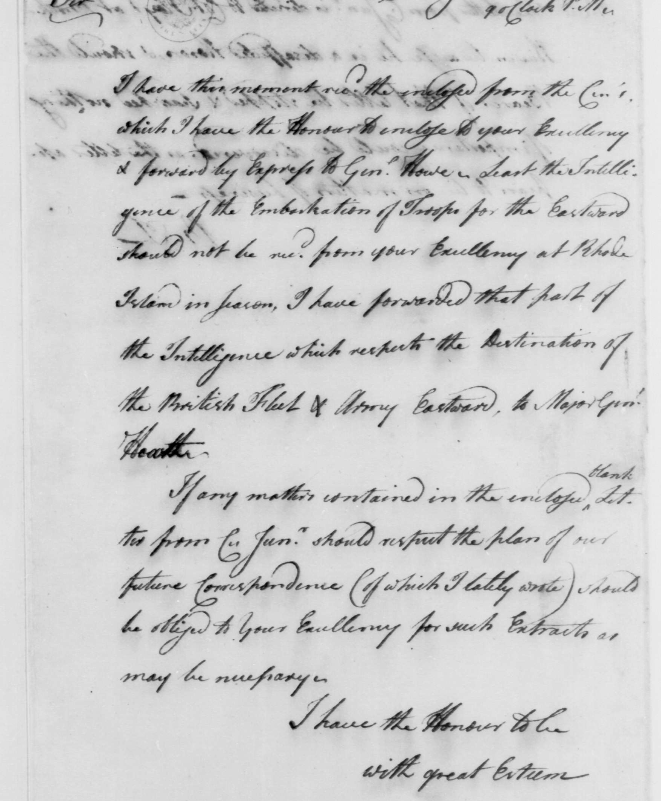 Sir
9 oClock P.M.
I have this moment recd. the inclosed from the Cu's.
which I have the Honour to inclose to your Excellency
& forward by Express to Genl. Howe. Least the Intelli-
gence of the Embarkation of Troops for the Eastward
should not be recd. from your Excellency at Rhode
Island in season, I have forwarded that part of
the Intelligence which respects the Destination of
the British Fleet & Army Eastward, to Major Genl.
Heath.
If any matters contained in the inclosed blank Let-
ter from Cu Junr. should respect the plan of our
future Correspondence (of which I lately wrote) should
be obliged to Your Excellency for such Extracts as
may be necessary.
I have the Honour to be
with great Esteem